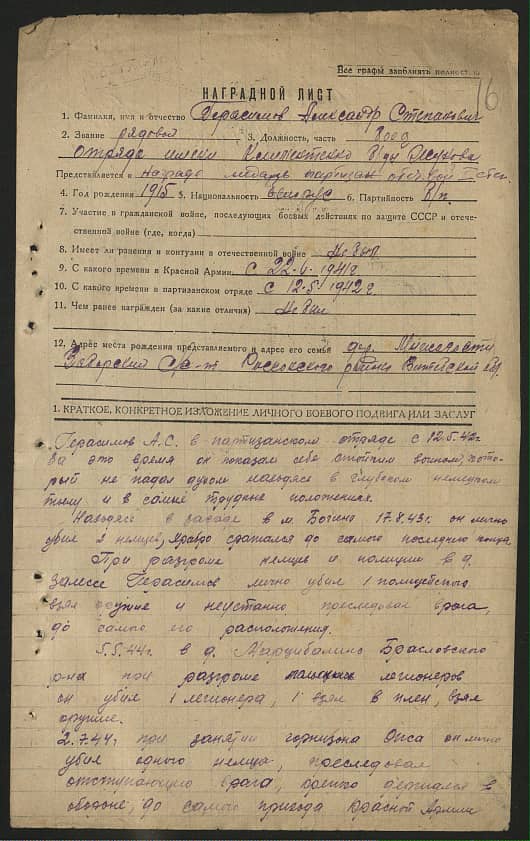 Все графы заполнять полностью
16
НАГРАДНОЙ ЛИСТ
1. Фамилия, имя и отчество Герасимов Александр Степанович
2. Звание рядовой 3. Должность, часть боец
отряда имени
Представляется к награде медаль партизан отеч. вой I степ.
4. Год рождения 1915 5. Национальность белорус 6. Партийность б/п
7. Участие в гражданской войне, последующих боевых действиях по защите СССР и отече-
ственной войне (где, когда)
8. Имеет ли ранения и контузии в отечественной войне не был
9. С какого времени в Красной Армии с 22.6.1941г
10. С какого времени в партизанском отряде с 12.5.1942г
11. Чем ранее награжден (за какие отличия)
12. Адрес места рождения представляемого и адрес его семьи дер.
с/с-т района обл.
1. КРАТКОЕ, КОНКРЕТНОЕ ИЗЛОЖЕНИЕ ЛИЧНОГО БОЕВОГО ПОДВИГА ИЛИ ЗАСЛУГ
Герасимов А.С. в партизанском отряде с 12.5.42г
За это время он показал себя стойким воином, кото-
рый не падал духом находясь в глубоком немецком
тылу и в самые трудные положения.
Находясь в засаде в м. Богино 17.8.43г. он лично
убил 2 немцев, храбро сражался до самого последнего конца.
При разгроме немцев и полиции в д.
Залесье Герасимов лично убил 1 полицейского
взял оружие и неустанно преследовал врага,
до самого его расположения.
5.5.44г. в д. Браславского
р-на при разгроме польских легионеров
он убил 1 легионера, 1 взял в плен, взял
оружие.
2.7.44г. при занятии гарнизона Опса он лично
убил одного немца, преследовал
отступающего врага, крепко держался в
обороне, до самого прихода Красной Армии